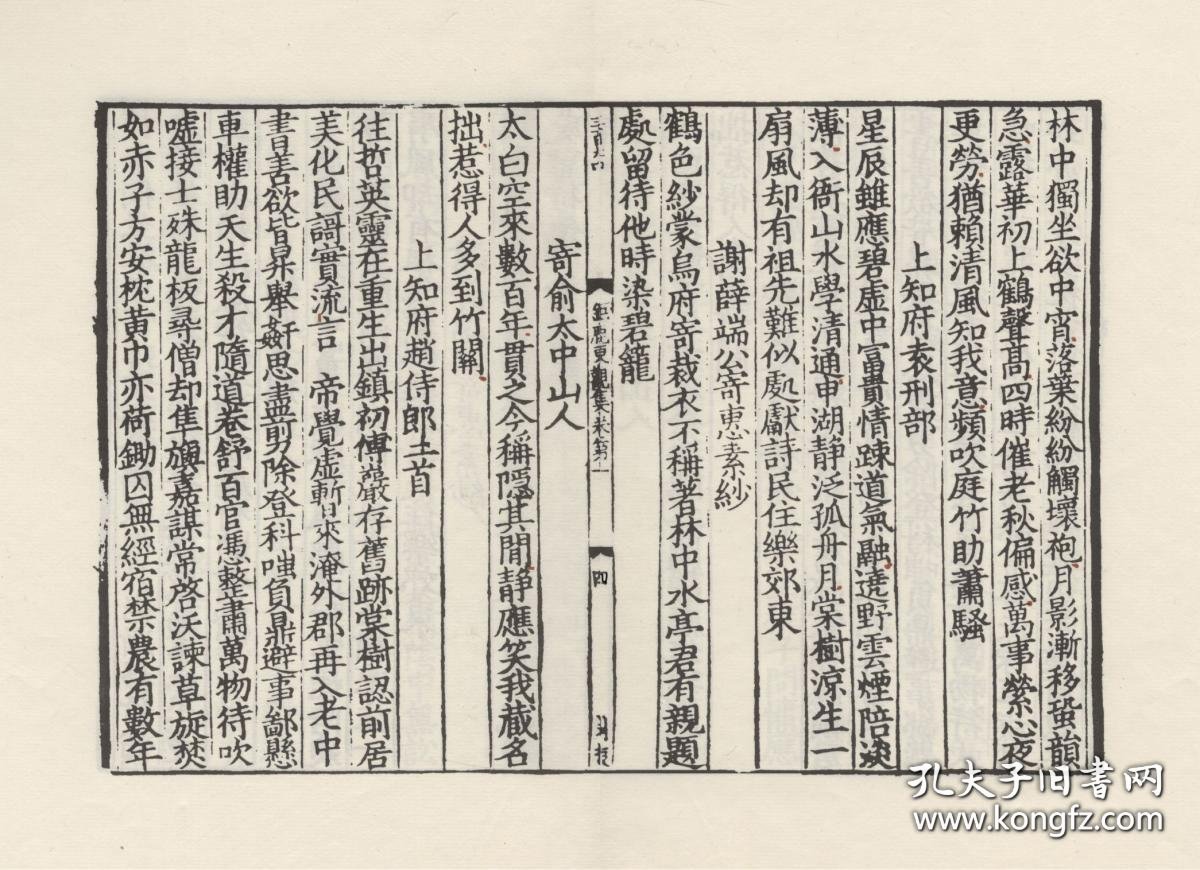 林中獨坐欲中宵落葉紛紛觸壞袍月影漸移蛩韻
急露華初上鶴聲髙四時催老秋偏感萬事縈心夜
更勞猶賴清風知我意頻吹庭竹助蕭騷
上知府袁刑部
星辰雖應碧虛中冨貴情踈道氣融遶野雲煙陪淡
薄入衙山水學清通申湖静泛孤舟月棠樹涼生一
扇風却有祖先難似處獻詩民住樂郊東
謝薛端公寄惠素紗
鶴色紗蒙烏府寄裁衣不稱著林中水亭君有親題
處留待他時染碧籠
鉅鹿東觀集卷第
四
寄俞太中山人
太白空來數百年貫之今稱隱其間静應笑我藏名
拙惹得人多到竹關
上知府趙侍郎二首
往哲英靈在重生出鎮初傅巖存舊跡棠樹認前居
美化民謌實流言 帝覺虛暫來淹外郡再入老中
書善欲皆昇舉姧思盡剪除登科嗤負鼎避事鄙懸
車權助天生殺才隨道卷舒百官馮整肅萬物待吹
噓接士殊龍板尋僧却隼旟嘉謀常啓沃諫草旋焚
如赤子方安枕黄巾亦荷鋤囚無經宿禁農有數年
孔夫子旧书网
www.kongfz.com